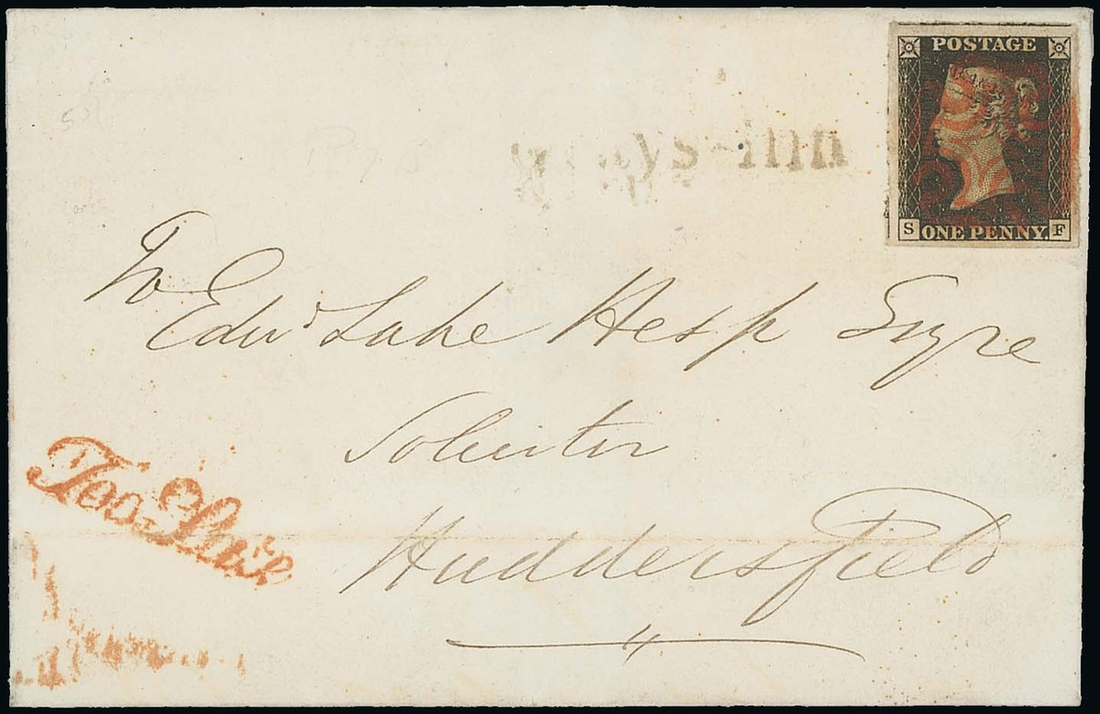 POSTAGE
S ONE PENNY. F
ys-inn
To
Edwd Lake Hesp Esqre
Solicitor
Huddersfield
Too Late